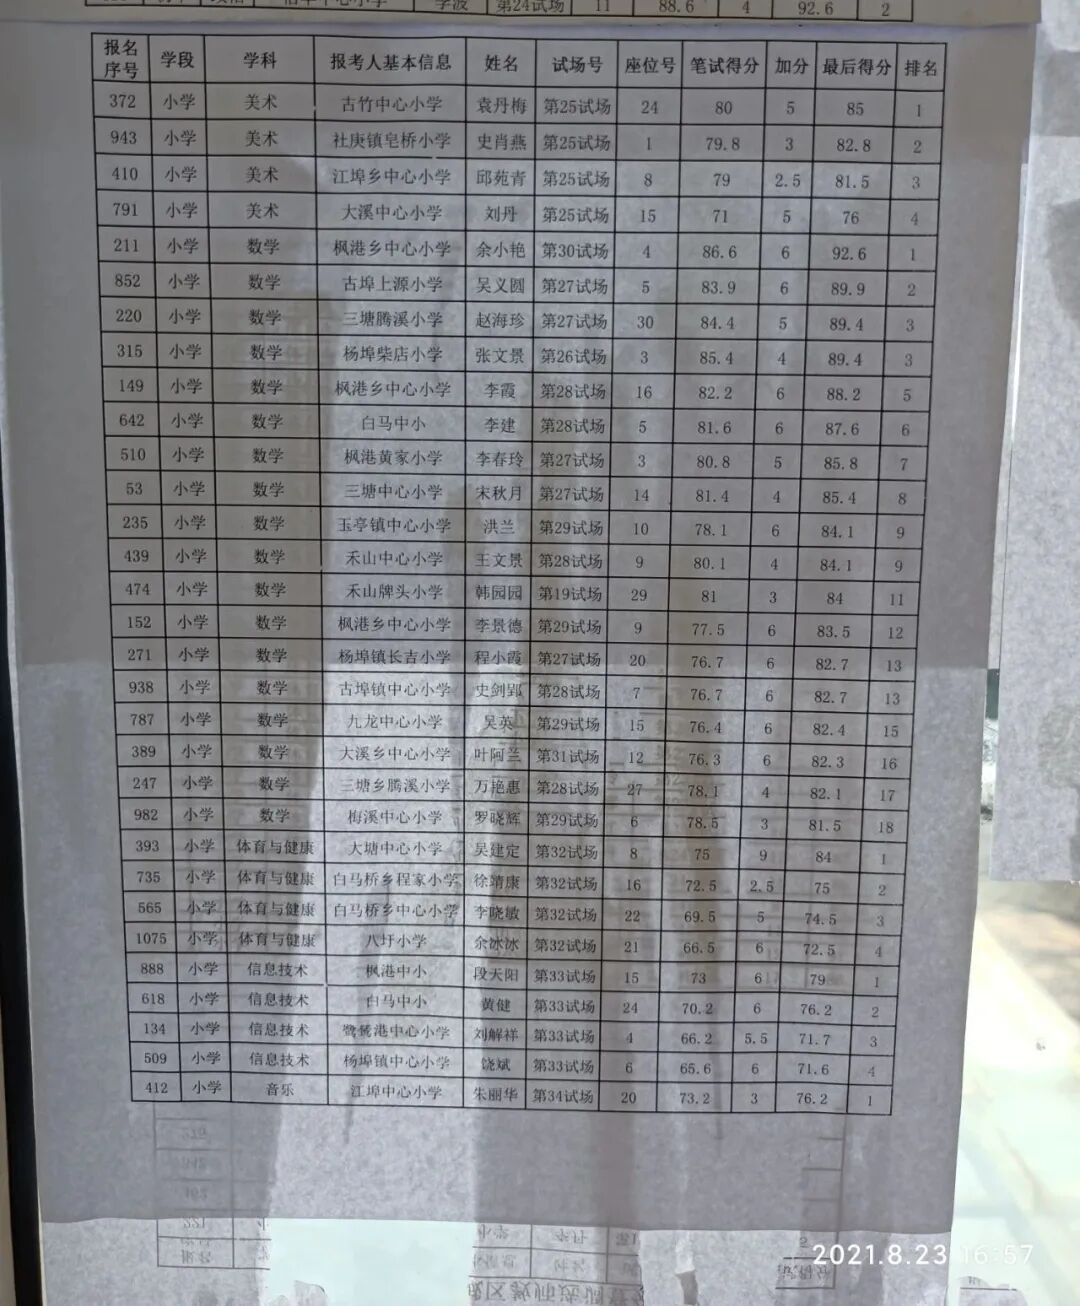 学波 第24试场 11 88.6 4 92.6 2
报名序号 学段 学科 报考人基本信息 姓名 试场号 座位号 笔试得分 加分 最后得分 排名
372 小学 美术 古竹中心小学 袁丹梅 第25试场 24 80 5 85 1
943 小学 美术 社庚镇皂桥小学 史肖燕 第25试场 1 79.8 3 82.8 2
410 小学 美术 江埠乡中心小学 邱苑青 第25试场 8 79 2.5 81.5 3
791 小学 美术 大溪中心小学 刘丹 第25试场 15 71 5 76 4
211 小学 数学 枫港乡中心小学 余小艳 第30试场 4 86.6 6 92.6 1
852 小学 数学 古埠上源小学 吴义圆 第27试场 5 83.9 6 89.9 2
220 小学 数学 三塘腾溪小学 赵海珍 第27试场 30 84.4 5 89.4 3
315 小学 数学 杨埠柴店小学 张文景 第26试场 3 85.4 4 89.4 3
149 小学 数学 枫港乡中心小学 李霞 第28试场 16 82.2 6 88.2 5
642 小学 数学 白马中小 李建 第28试场 5 81.6 6 87.6 6
510 小学 数学 枫港黄家小学 李春玲 第27试场 3 80.8 5 85.8 7
53 小学 数学 三塘中心小学 宋秋月 第27试场 14 81.4 4 85.4 8
235 小学 数学 玉亭镇中心小学 洪兰 第29试场 10 78.1 6 84.1 9
439 小学 数学 禾山中心小学 王文景 第28试场 9 80.1 4 84.1 9
474 小学 数学 禾山牌头小学 韩园园 第19试场 29 81 3 84 11
152 小学 数学 枫港乡中心小学 李景德 第29试场 9 77.5 6 83.5 12
271 小学 数学 杨埠镇长吉小学 程小霞 第27试场 20 76.7 6 82.7 13
938 小学 数学 古埠镇中心小学 史剑郢 第28试场 7 76.7 6 82.7 13
787 小学 数学 九龙中心小学 吴英 第29试场 15 76.4 6 82.4 15
389 小学 数学 大溪乡中心小学 叶阿兰 第31试场 12 76.3 6 82.3 16
247 小学 数学 三塘乡腾溪小学 万艳惠 第28试场 27 78.1 4 82.1 17
982 小学 数学 梅溪中心小学 罗晓辉 第29试场 6 78.5 3 81.5 18
393 小学 体育与健康 大塘中心小学 吴建定 第32试场 8 75 9 84 1
735 小学 体育与健康 白马桥乡程家小学 徐靖康 第32试场 16 72.5 2.5 75 2
565 小学 体育与健康 白马桥乡中心小学 李晓敏 第32试场 22 69.5 5 74.5 3
1075 小学 体育与健康 八圩小学 余冰冰 第32试场 21 66.5 6 72.5 4
888 小学 信息技术 枫港中小 段天阳 第33试场 15 73 6 79 1
618 小学 信息技术 白马中小 黄健 第33试场 24 70.2 6 76.2 2
134 小学 信息技术 鹭鸶港中心小学 刘解祥 第33试场 4 66.2 5.5 71.7 3
509 小学 信息技术 杨埠镇中心小学 饶斌 第33试场 6 65.6 6 71.6 4
412 小学 音乐 江埠中心小学 朱丽华 第34试场 20 73.2 3 76.2 1
2021.8.23 16:57